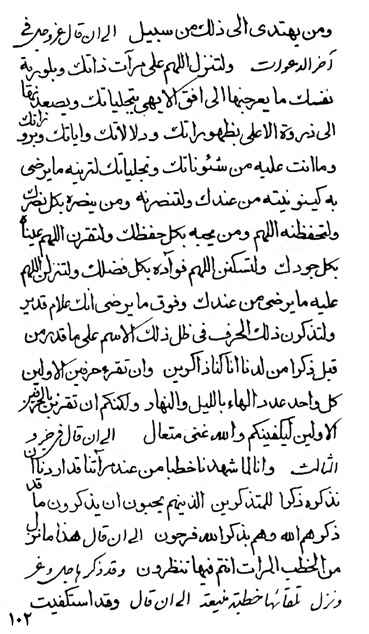 ومن يهتدى الى ذلك من سبيل الى ان قال عز وجل فى
آخر الدعوات ولتنزل اللهم على مرآت ذاتك وبلورية
نفسك ما يعرجنها الى افق الابهى بتجلياتك ويصعدنها
الى ذروة الاعلى بظهوراتك ودلالاتك واياتك
وما انت عليه من شئوناتك وتجلياتك لترينه ما يرضى
به كينونيته من عندك ولتنصرنه ومن ينصره بكل نصرك
ولتحفظنه اللهم ومن يحبه بكل حفظك ولتقرن اللهم عيناه
بكل جودك ولتسكنن اللهم فوآده بكل فضلك ولتنزلن اللهم
عليه ما يرضى من عندك وفوق ما يرضى انك علام قدير
ولتذكرون ذلك الحرف فى ظل ذلك الاسم على ما قدر من
قبل ذكرا من لدنا انا كنا ذاكرين وان تقرء حزه من الاولين
كل واحد عدد الهاء بالليل والنهار ولكنكم ان تقرئن
الاولين ليكفينكم والله غنى متعال الى ان قال فى جزو
الثالث وانا لما شهدنا خطبا من عند مرآتنا قد اردنا ان
نذكره ذكرا للمتذكرين الذينهم يحبون ان يذكرون ما قد
ذكرهم الله وهم بذكر الله فرحون الى ان قال هذا ما نزل
من الخطب المرات انتم فيها تنظرون وقد ذكرها جل وعز
ونزل تلقائها خطبة منيعة الى ان قال وقد استكفيت
١٠٢